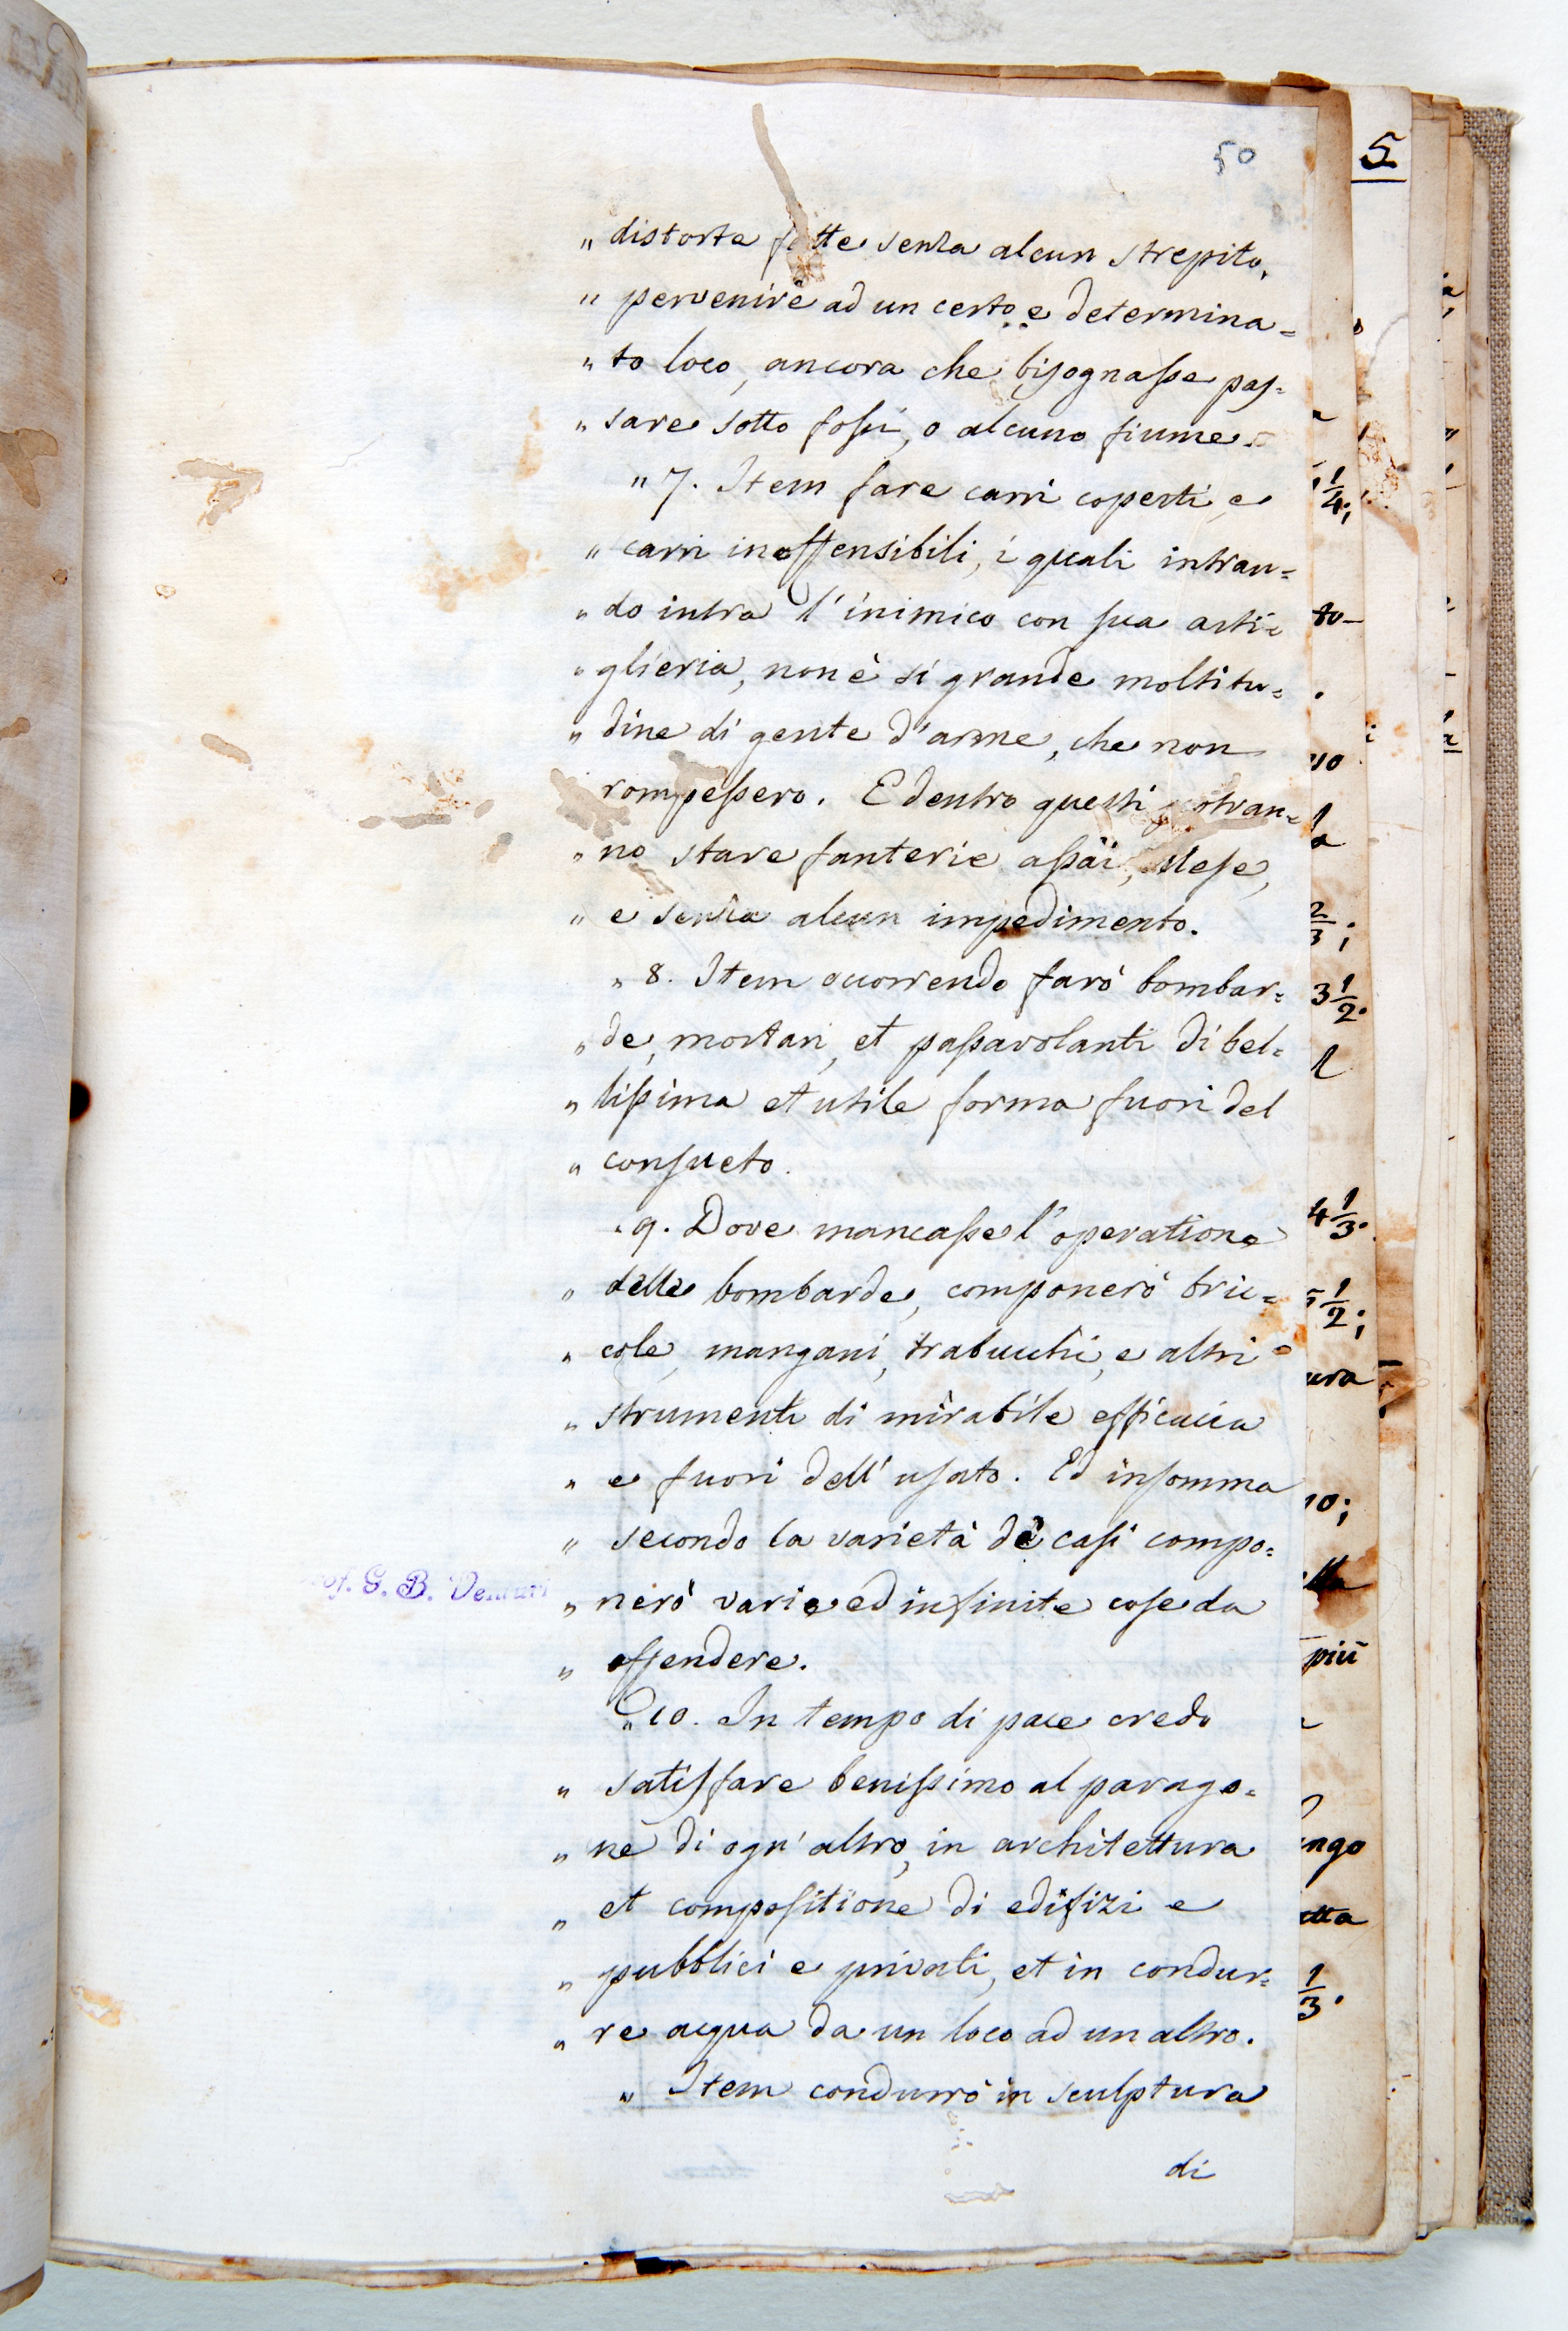 50
5
„ distorte fatte senza alcun strepito,
„ pervenire ad un certo e determina=
„ to loco, ancora che bisognasse pas=
„ sare sotto fossi, o alcuno fiume.
„ 7. Item fare carri coperti e
„ carri inoffensibili, i quali intran=
„ do intra l'inimico con sua arti=
„ glieria, non è si grande moltitu=
„ dine di gente d'arme, che non
rompessero. E dentro questi potran=
„ no stare fanterie assai, illese,
„ e senza alcun impedimento.
„ 8. Item occorrendo farò bombar=
„ de, mortari, et passavolanti di bel=
„ lissima et utile forma fuori del
„ consueto.
„ 9. Dove mancasse l'operatione
„ delle bombarde, componerò bric=
„ cole, mangani, trabucchi, e altri
„ strumenti di mirabile efficacia
„ e fuori dell'usato. Ed insomma
„ secondo la varietà de casi compo=
„ nerò varie ed infinite cose da
„ offendere.
„ 10. In tempo di pace credo
„ satisffare benissimo al parago=
„ ne di ogn'altro, in architettura
„ et compositione di edifizi e
„ pubblici e privati, et in condur=
„ re acqua da un loco ad un altro.
„ Item condurrò in sculptura
di
G. B. Venturi
1/4;
to-
2/3;
3 1/2.
4 1/3.
1/2;
più
1/3.